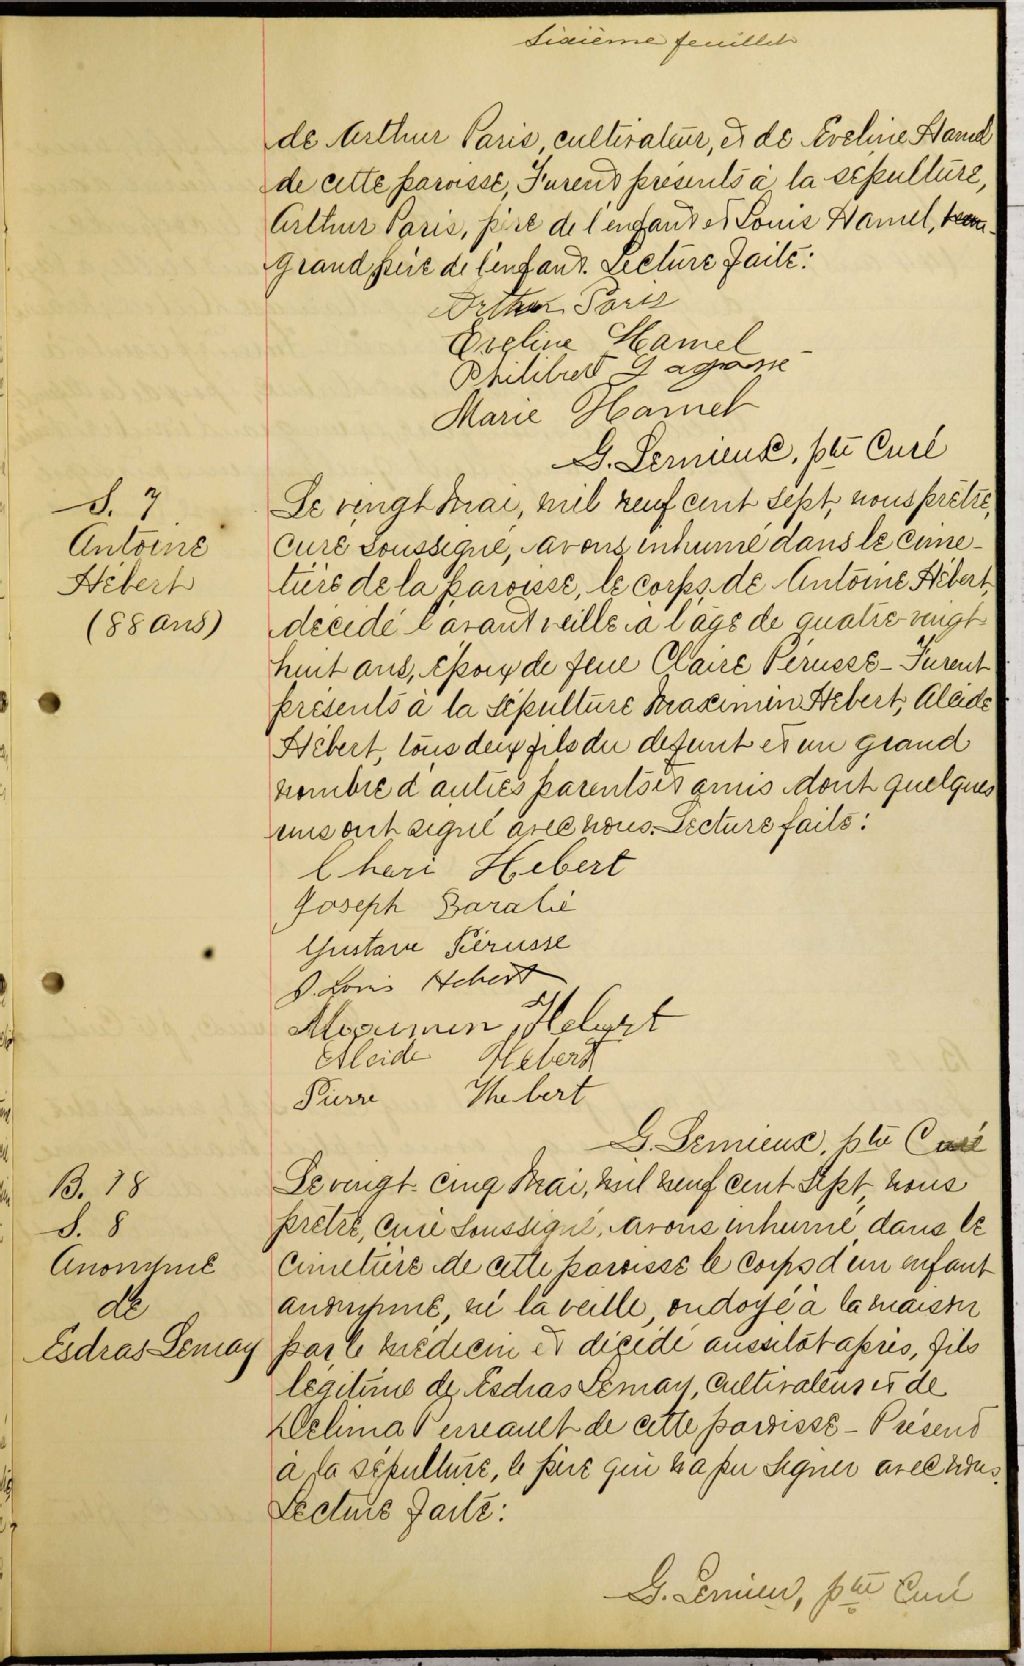 Sixième feuillet
de Arthur Paris, cultivateur, et de Eveline Hamel
de cette paroisse, Furent présents à la sépulture,
Arthur Paris, père de l'enfant et Louis Hamel,
grand père de l'enfant. Lecture faite:
Arthur Paris
Eveline Hamel
Philibert
Marie Hamel
G. Lemieux, ptre Curé
S. 7
Antoine
Hébert
(88 ans)
Le vingt Mai, mil neuf cent sept, nous prêtre,
curé soussigné, avons inhumé dans le cime-
tière de la paroisse, le corps de Antoine Hébert,
décédé l'avant veille à l'âge de quatre-vingt-
huit ans, époux de feue Claire Pérusse - Furent
présents à la sépulture Maximin Hébert, Alcide
Hébert, tous deux fils du defunt et un grand
nombre d'autres parents et amis dont quelques
uns ont signé avec nous. Lecture faite:
Cheri Hebert
Joseph Baralié
Gustave Pérusse
J. Louis Hebert
Hebert
Alcide Hebert
Pierre Hebert
G. Lemieux, ptre Curé
B. 18
S. 8
Anonyme
de
Esdras Lemay
Le vingt-cinq Mai, mil neuf cent sept, nous
prêtre, curé soussigné, avons inhumé, dans le
cimetière de cette paroisse le corps d'un enfant
anonyme, né la veille, ondoyé à la maison
par le médecin et décédé aussitôt après, fils
légitime de Esdras Lemay, cultivateur et de
Delima Perreault de cette paroisse - Présent
à la sépulture, le père qui n'a pu signer avec nous.
Lecture faite:
G. Lemieux, ptre Curé